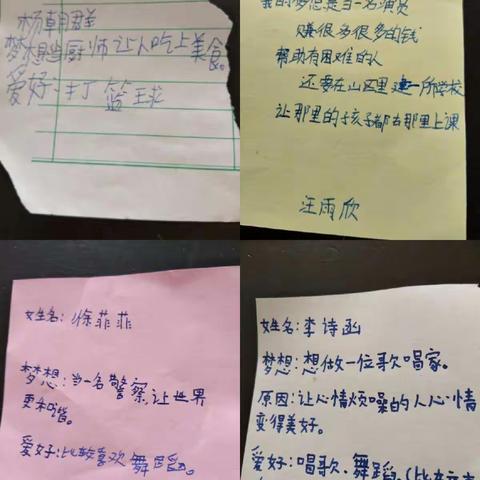 杨朝群
梦想当厨师让人吃上美食。
爱好:打篮球
我的梦想是当一名演员
赚很多很多的钱
帮助有困难的人
还要在山区里建一所学校
让那里的孩子都去那里上课
汪雨欣
姓名:徐菲菲
梦想:当一名警察,让世界
更和谐。
爱好:比较喜欢舞蹈。
姓名:李诗函
梦想:想做一位歌唱家。
原因:让心情烦噪的人心情
变得美好。
爱好:唱歌、舞蹈。(比较